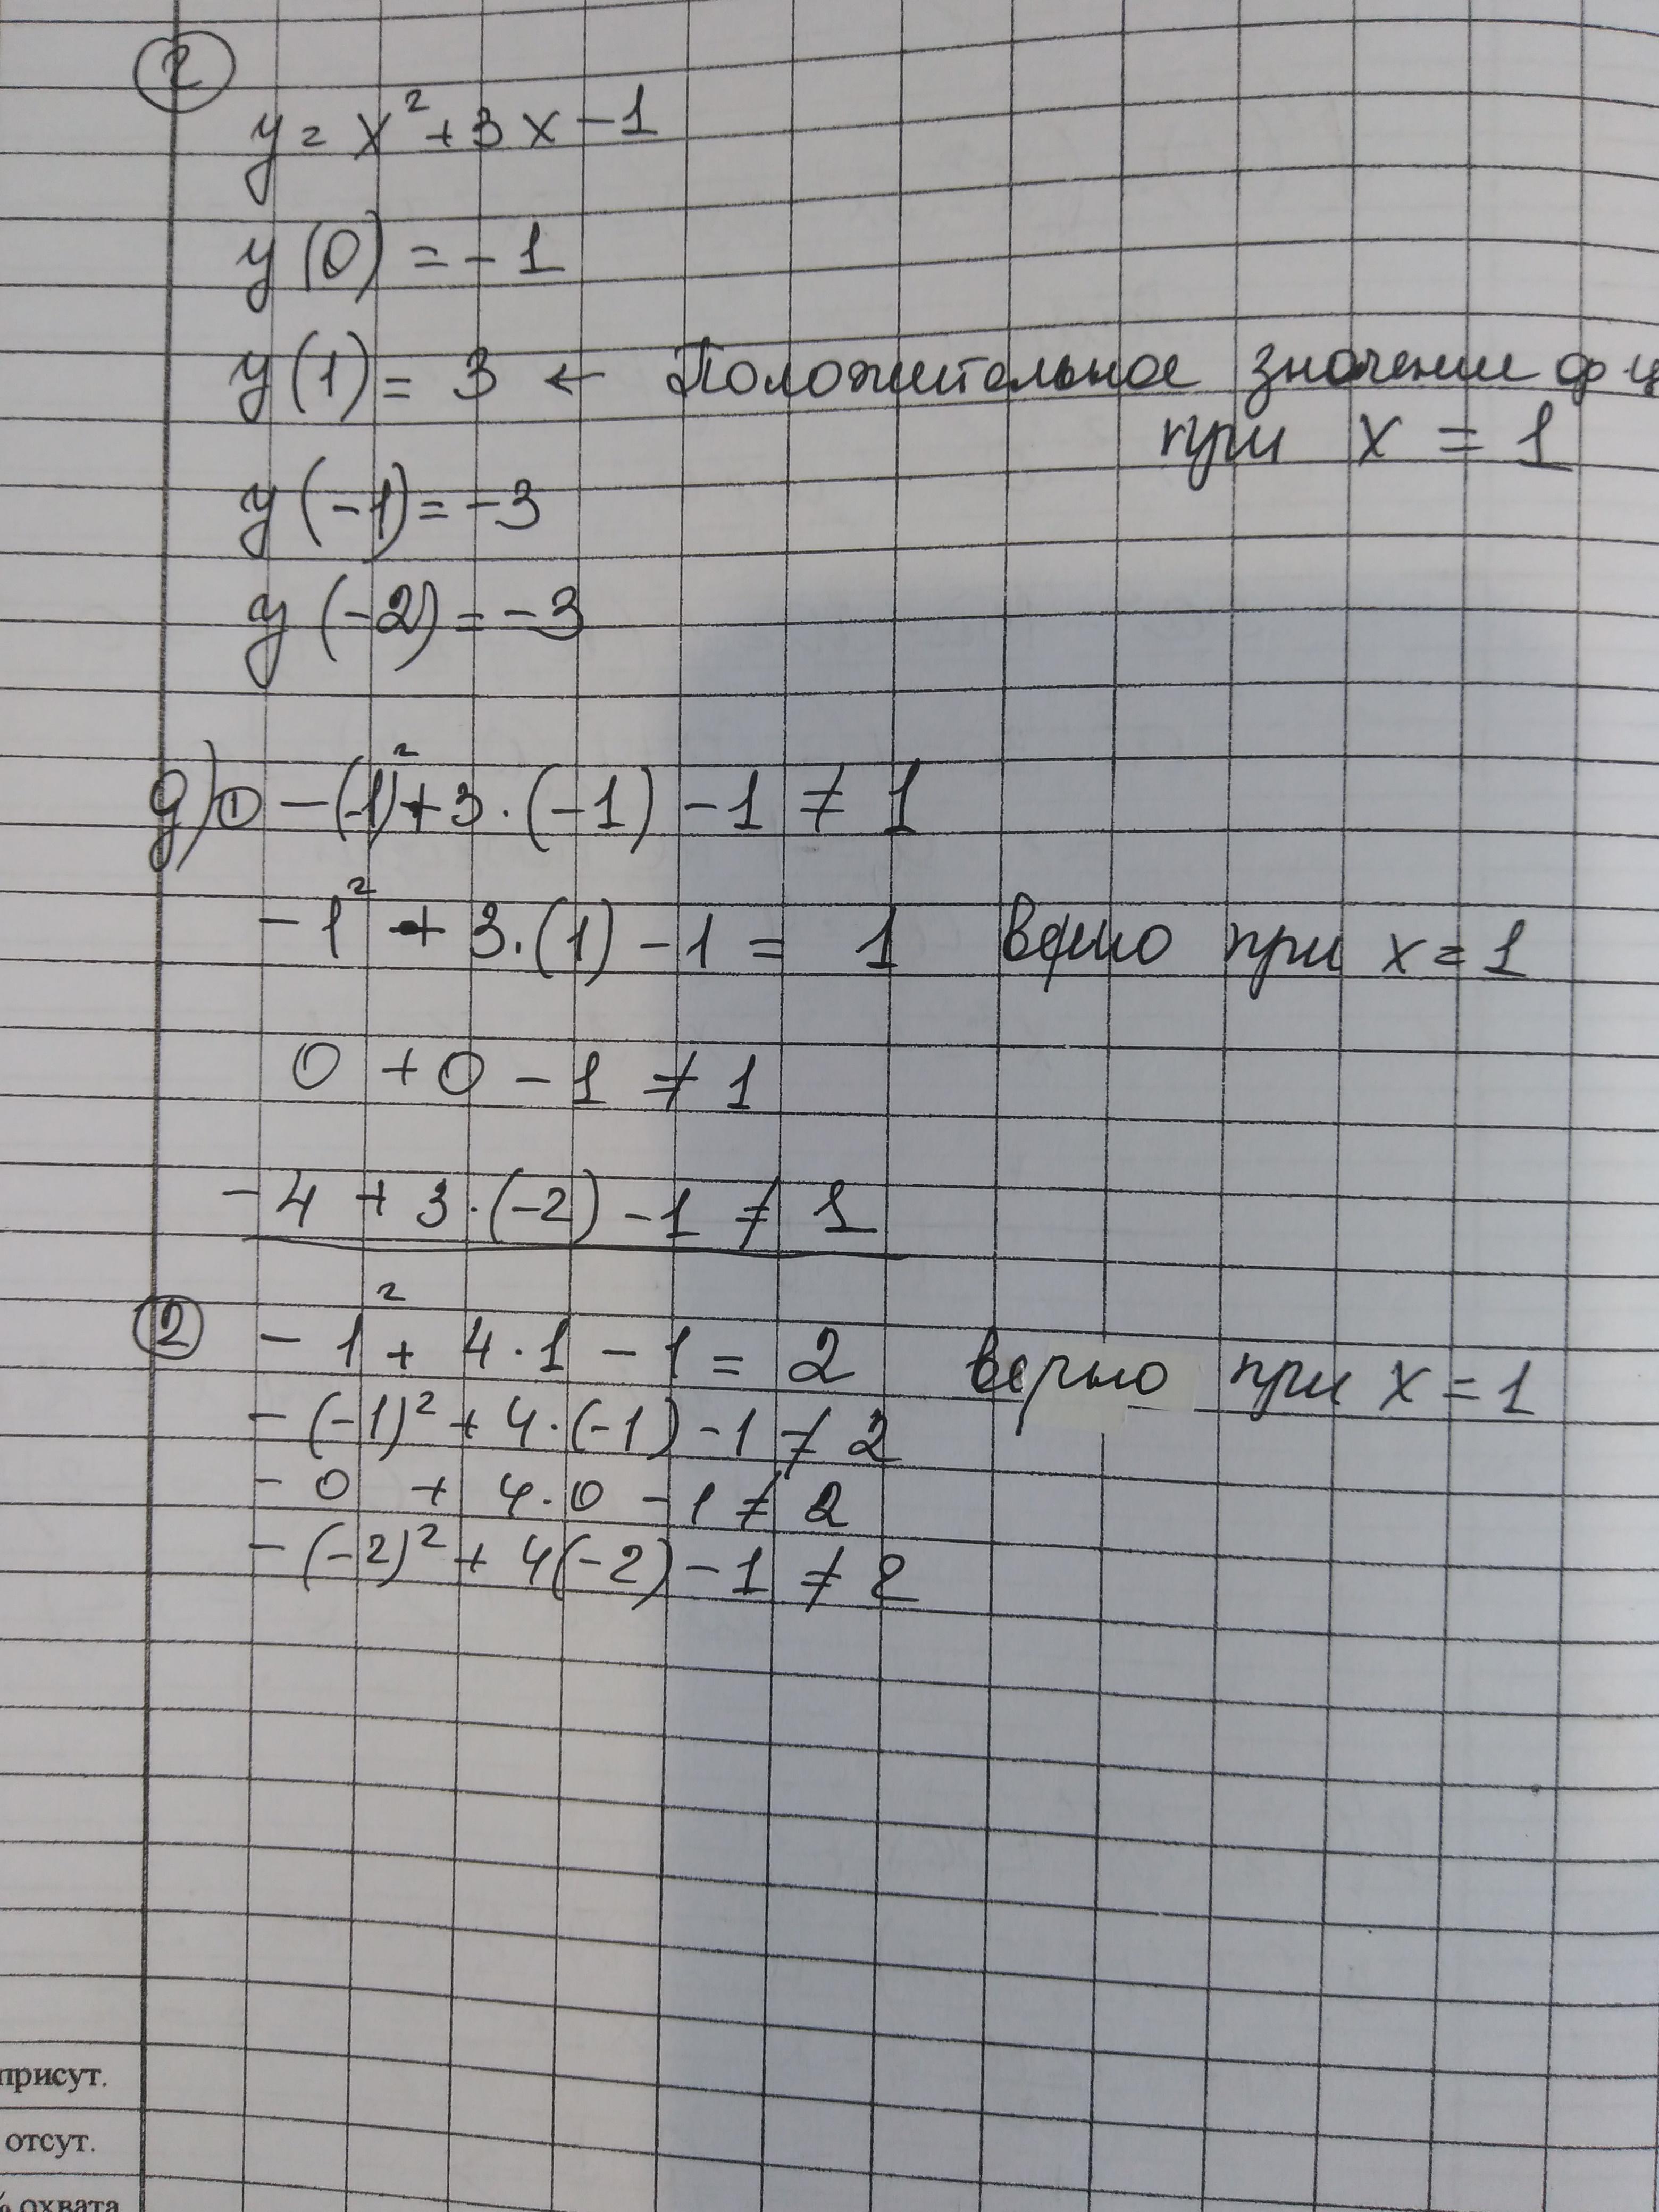 ②
y = x² + 3x - 1
y(0) = - 1
y(1) = 3 ← Положительное значение ф-ц
при x = 1
y(-1) = -3
y(-2) = -3
д) ① -(-1)² + 3·(-1) - 1 ≠ 1
- 1² + 3·(1) - 1 = 1 верно при x = 1
0 + 0 - 1 ≠ 1
- 4 + 3·(-2) - 1 ≠ 1
② - 1² + 4·1 - 1 = 2 верно при x = 1
- (-1)² + 4·(-1) - 1 ≠ 2
- 0 + 4·0 - 1 ≠ 2
- (-2)² + 4(-2) - 1 ≠ 2
присут.
отсут.
% охвата